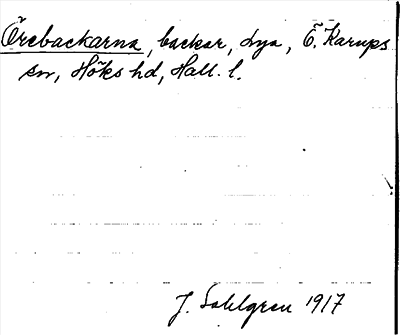 Örebackarna, backar, dya, Ö. Karups
sn, Höks hd, Hall. l.
J. Sahlgren 1917